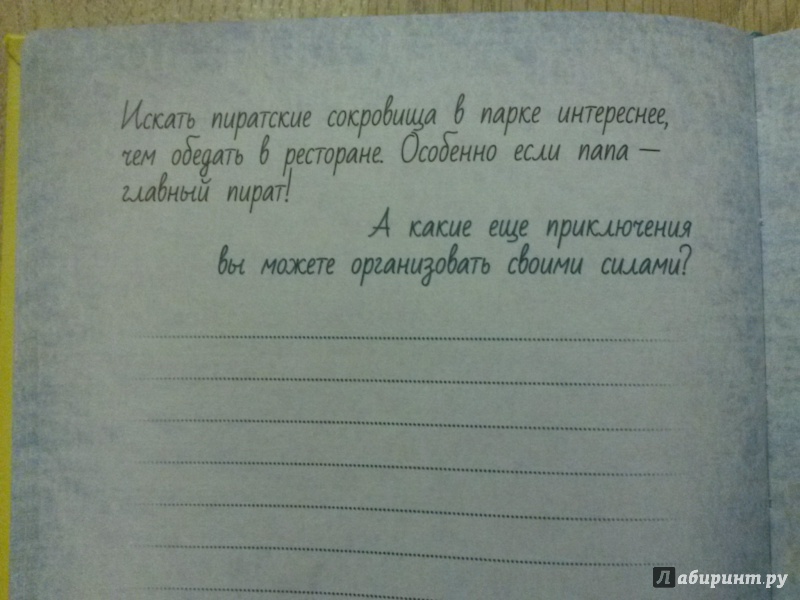 Искать пиратские сокровища в парке интереснее,
чем обедать в ресторане. Особенно если папа —
главный пират!
А какие еще приключения
вы можете организовать своими силами?
Лабиринт.ру